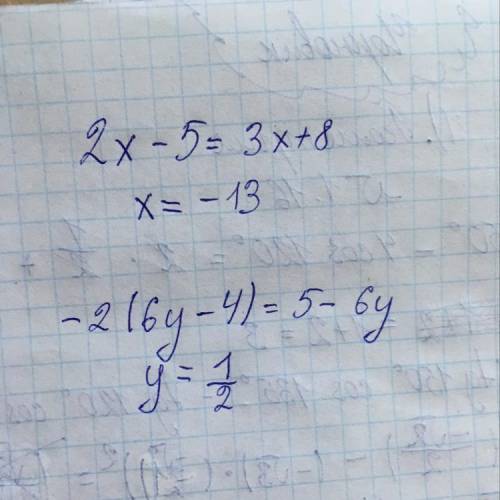 2x - 5 = 3x + 8
x = -13
-2(6y - 4) = 5 - 6y
y = 1/2